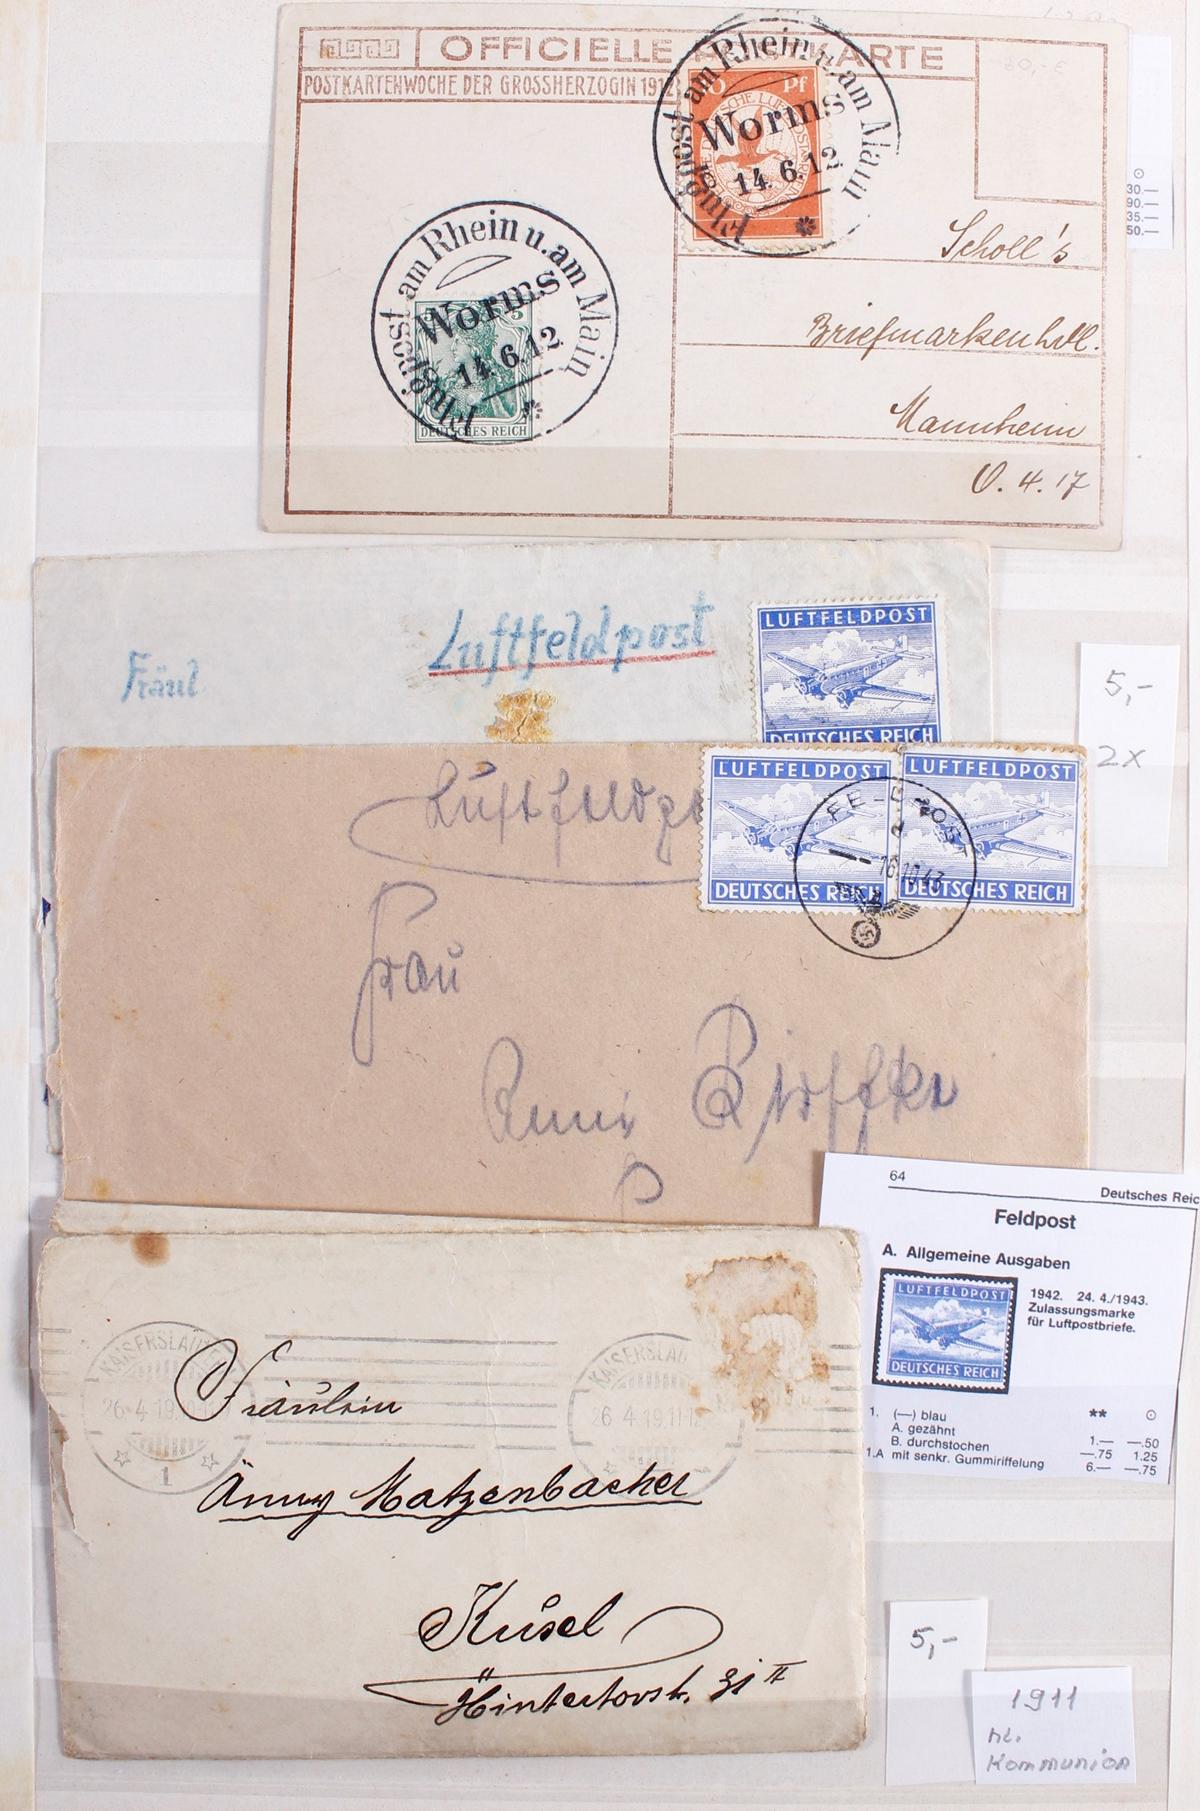 OFFICIELLE KARTE
POSTKARTENWOCHE DER GROSSHERZOGIN 1912
10 Pf
Flugpost am Rhein u. am Main
Worms
14.6.12
Flugpost am Rhein u. am Main
Worms
14.6.12
DEUTSCHES REICH
Scholl's
Briefmarkenhdl.
Mannheim
O. 4. 17
30.—
90.—
35.—
50.—
Luftfeldpost
Fräul
LUFTFELDPOST
DEUTSCHES REICH
5,-
2x
Luftfeldpo
LUFTFELDPOST
DEUTSCHES REICH
LUFTFELDPOST
DEUTSCHES REICH
FELDPOST
16.10.43
Frau
64
Deutsches Reic
Feldpost
A. Allgemeine Ausgaben
LUFTFELDPOST
DEUTSCHES REICH
1942. 24. 4./1943.
Zulassungsmarke
für Luftpostbriefe.
1. (—) blau ** ⊙
A. gezähnt 1.— —.50
B. durchstochen —.75 1.25
1.A mit senkr. Gummiriffelung 6.— —.75
KAISERSLAUTE
26.4.19
1
KAISERSLAU
26.4.19.11-12
Fräulein
Änny Matzenbacher
Kusel
Hintertorstr. 31 II
5,-
1911
Kommunion